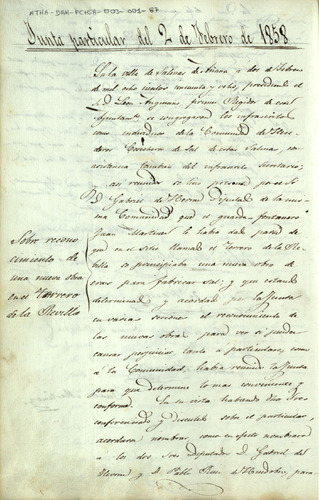 ATHA-DAH-FCHCA-003-001-87
Junta particular del 2 de Febrero de 1858
En la villa de Salinas de Añana a dos de Febrero
de mil ocho cientos cincuenta y ocho, presidiendo el
S. D. Leon Angulo primer Regidor de este
Ayuntamto se congregaron los infrascritos
como individuos de la Comunidad de Here
deros Cosecheros de Sal de estas Salinas, con
asistencia tambien del infrascrito Secretario;
asi reunidos se hizo presente por el Sr
D. Gabriel de Herran Diputado de la mis
ma Comunidad que el guarda fontanero
Juan Martinez le habia dado parte de
que en el Sitio llamado el Terrero de la Re
billa se principiaba una nueva obra de
eras para fabricar sal; y que estando
determinado y acordado por la Junta
en varias sesiones el reconocimiento de
las nuevas obras para ver si pueden
causar perjuicios, tanto a particulares, como
a la Comunidad, habia reunido la Junta
para que determine lo mas conveniente y
conforme. En su vista habiendo dichos Sres
conferenciado y discutido sobre el particular,
acordaron nombrar, como en efecto nombraron
a los dos Sres Diputados D. Gabriel del
Herran y D. Pablo Ruiz de para
Sobre recono
cimiento de
una nueva obra
en el Terrero
de la Revilla